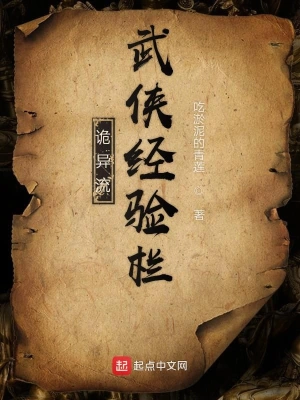 武侠经验栏
诡异流
吃淤泥的青莲。。著
起 起点中文网